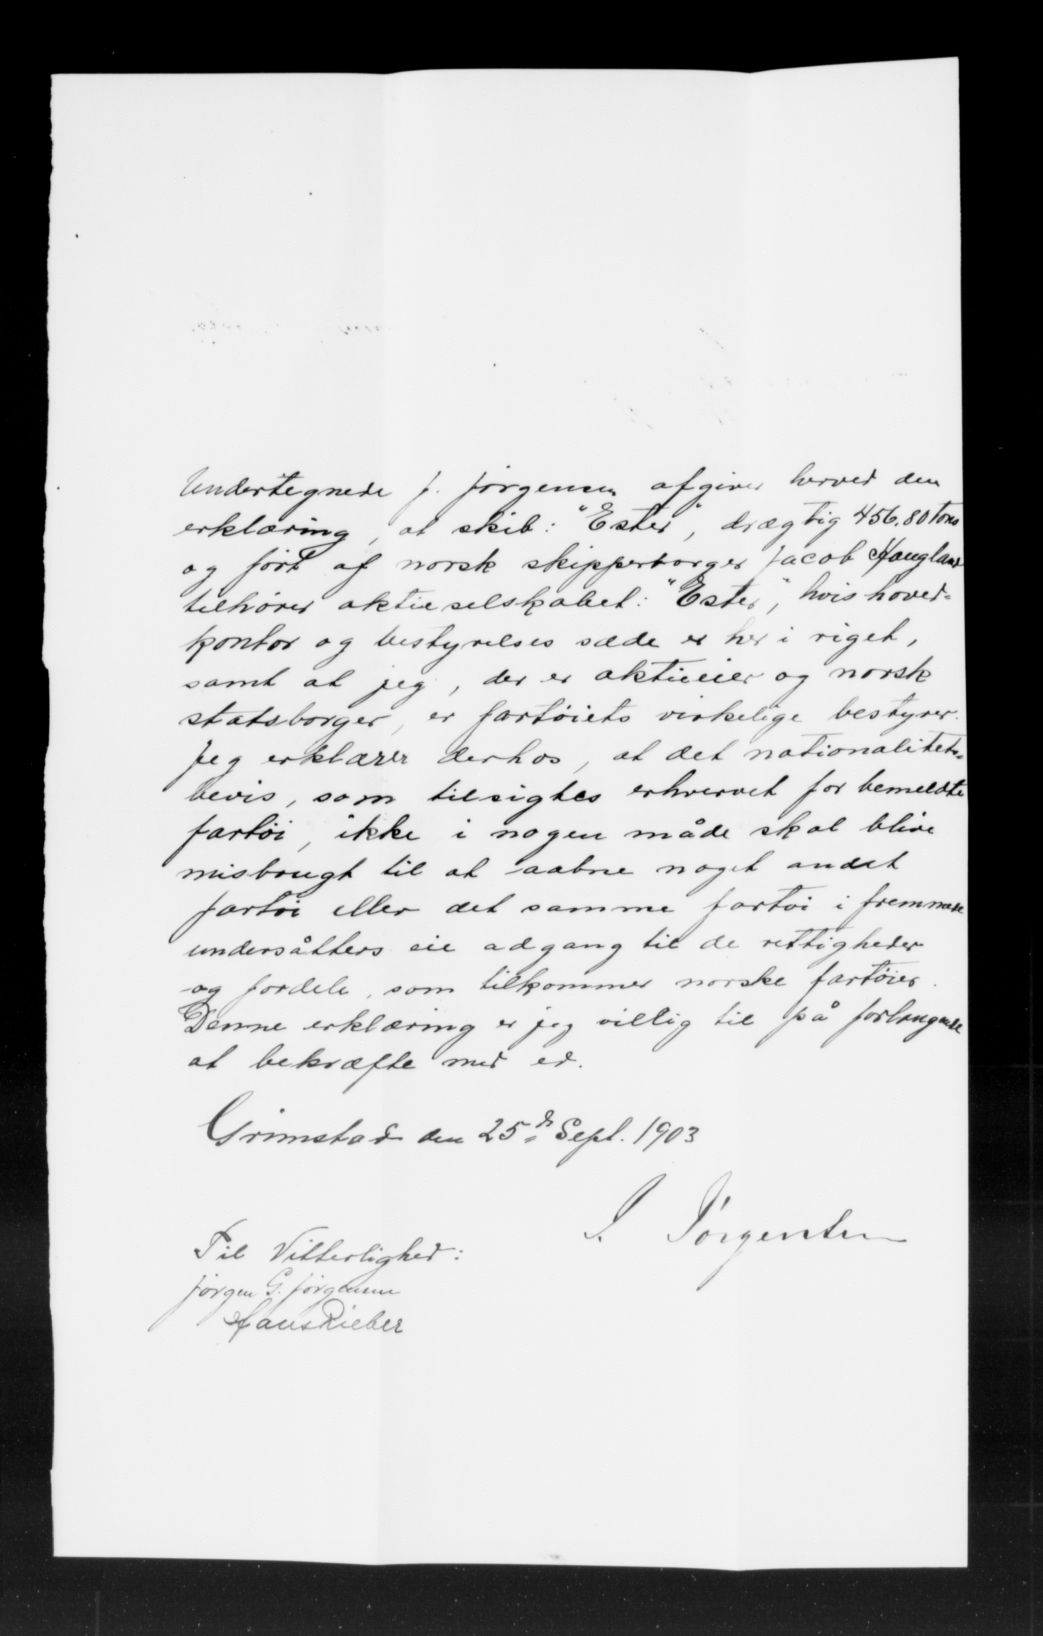 Undertegnede J. Jørgensen afgiver herved den
erklæring, at skib: "Ester", drægtig 456,80 tons
og ført af norsk skipperborger Jacob Haugland
tilhører aktieselskabet: "Ester", hvis hoved=
kontor og bestyrelses sæde er her i riget,
samt at jeg, der er aktieeier og norsk
statsborger, er fartøiets virkelige bestyrer.
Jeg erklærer derhos, at det nationalitets=
bevis, som tilsigtes erhvervet for bemeldte
fartøi, ikke i nogen måde skal blive
misbrugt til at aabne noget andet
fartøi eller det samme fartøi i fremmede
undersåtters eie adgang til de rettigheder
og fordele, som tilkommer norske fartøier.
Denne erklæring er jeg villig til på forlangende
at bekræfte med ed.
Grimstad den 25de Sept. 1903
J. Jørgensen
Til Vitterlighed:
Jørgen G. Jørgensen
Hans Rieber